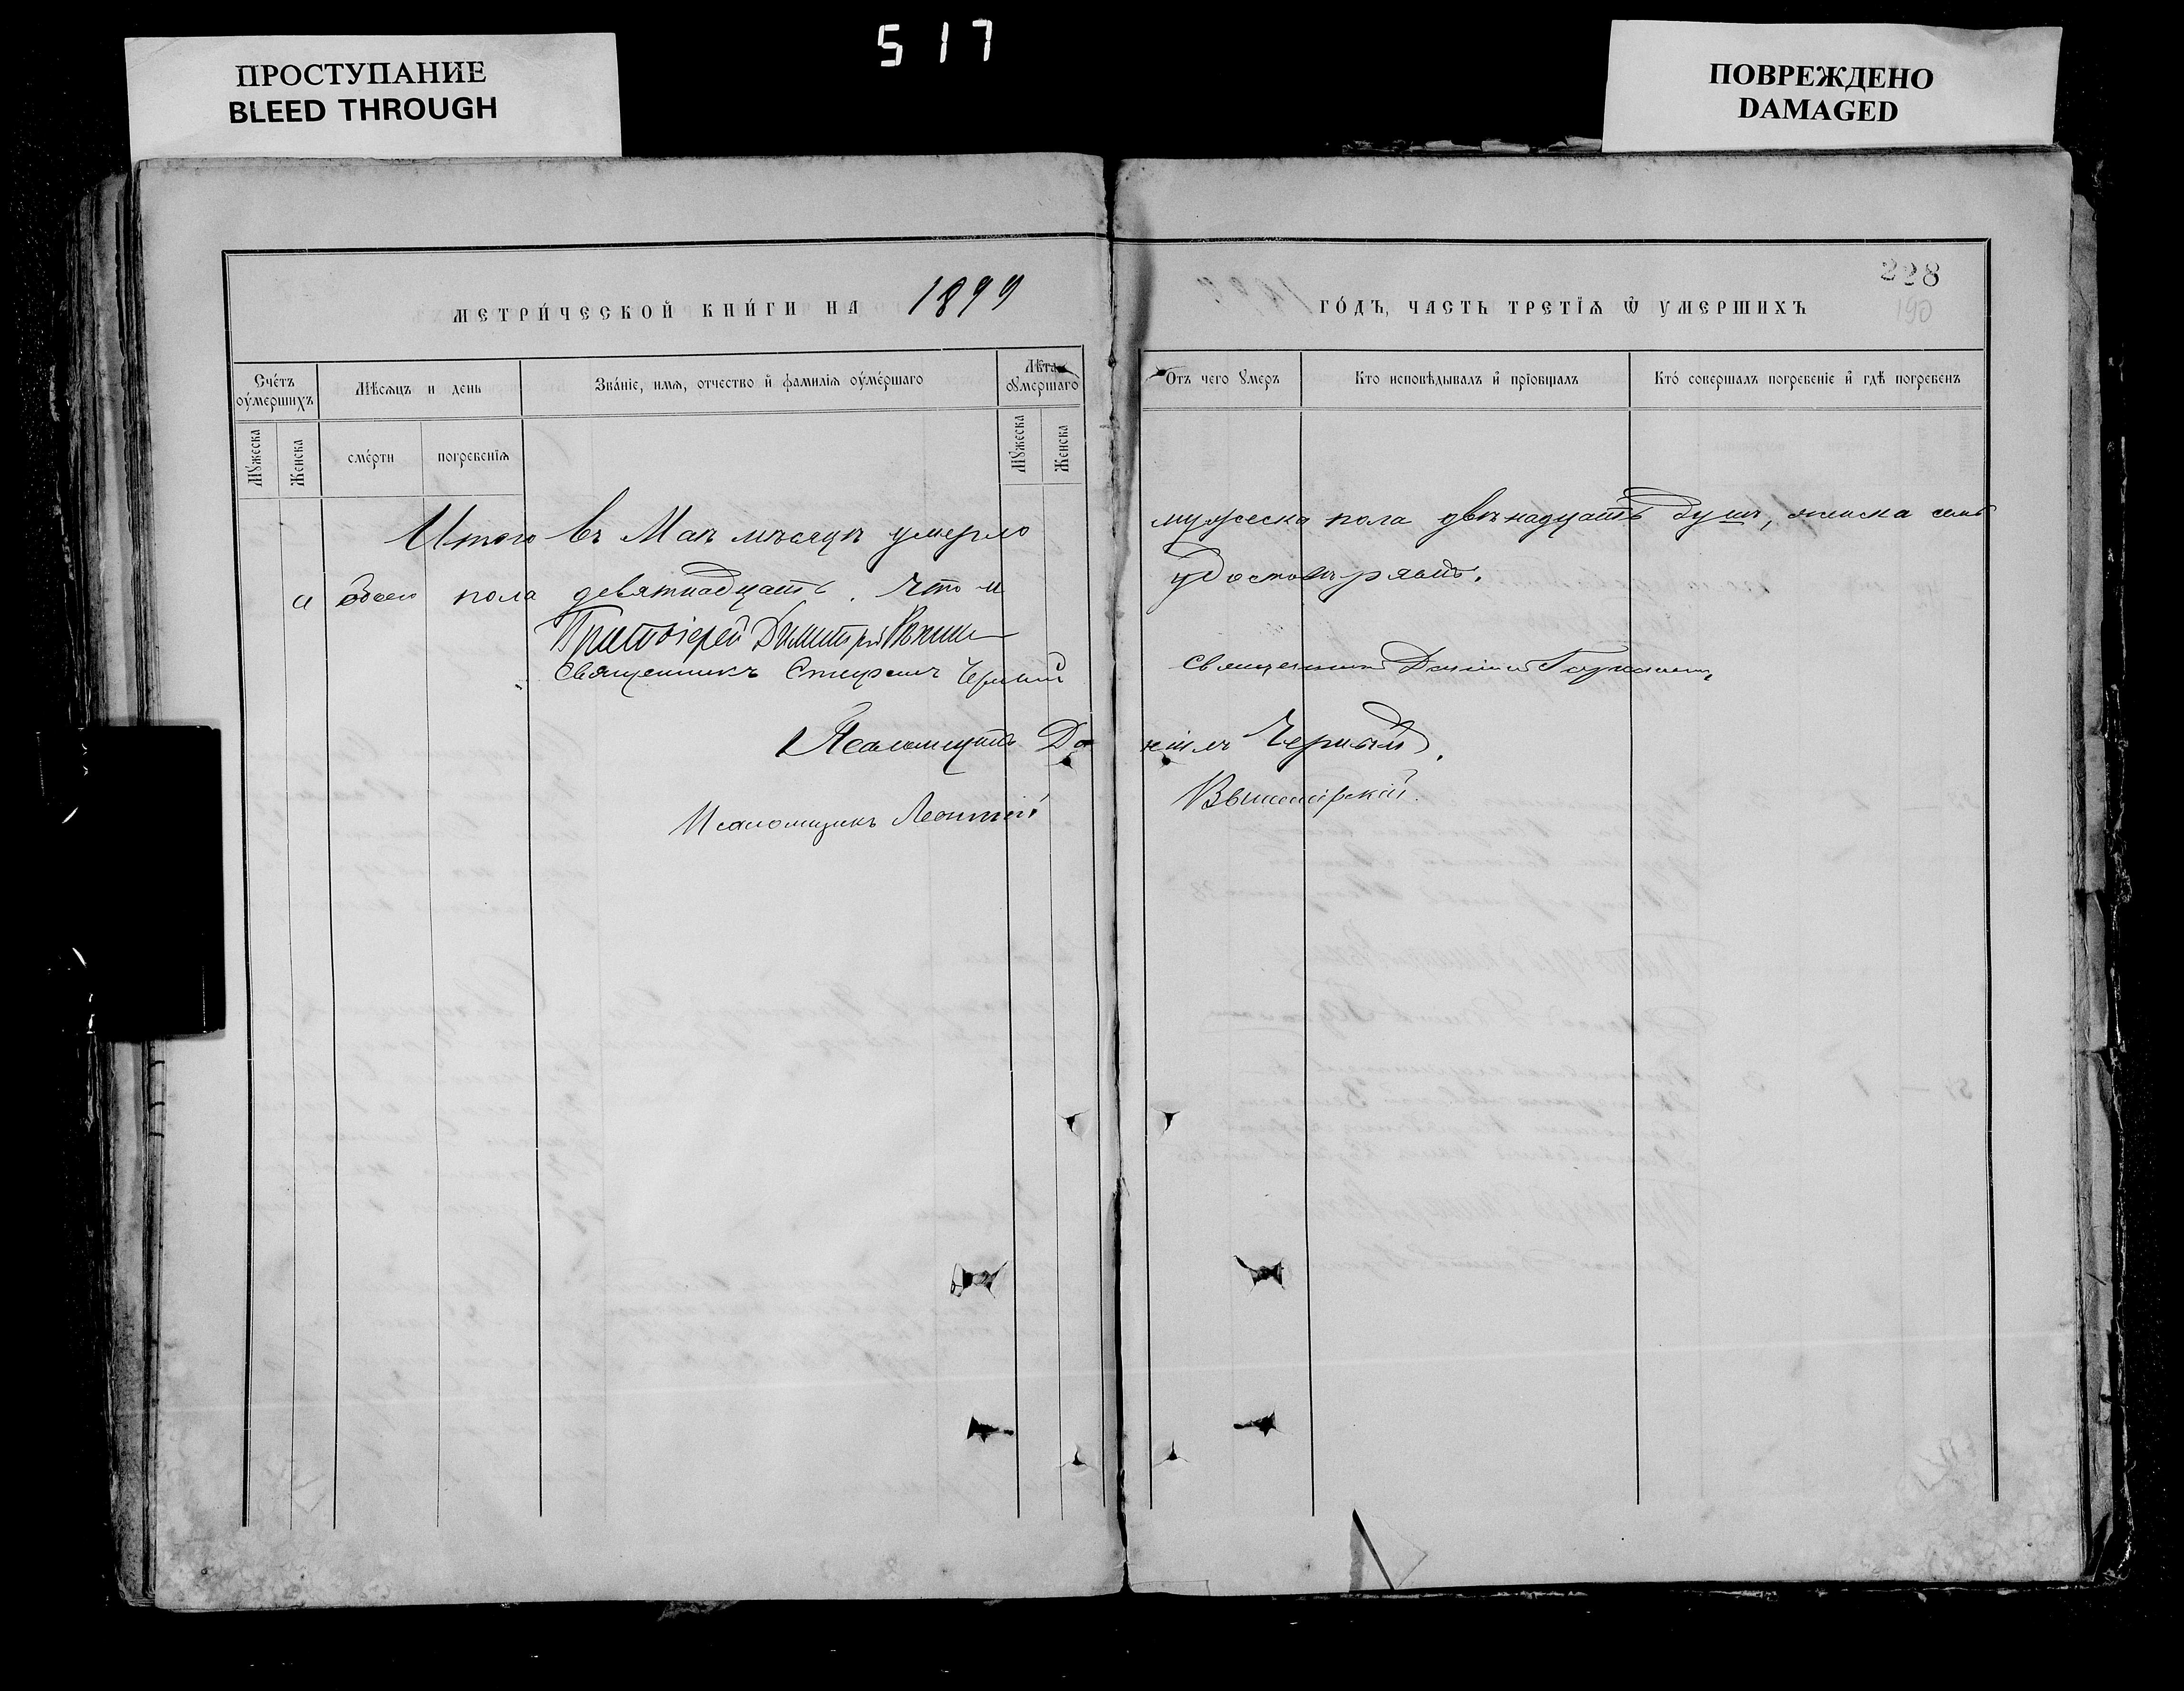 ПРОСТУПАНИЕ
BLEED THROUGH
517
ПОВРЕЖДЕНО
DAMAGED
228
190
МЕТРИ́ЧЕСКОЙ КНИ́ГИ НА 1899
ГО́ДЪ, ЧАСТЬ ТРЕТІѦ Ѿ УМЕРШИХЪ
Сче́тъ оу҆ме́ршихъ
Мѣсѧцъ и день
Зва́нїе, имѧ, отчество и҆ фамилїѧ оу҆ме́ршаго
Лѣта ᲂумершаго
Отъ чего ᲂумеръ
Кто исповѣдывалъ и҆ прїобщалъ
Кто́ совершалъ погребенїе и҆ гдѣ погребенъ
Мꙋжеска
Женска
сме́рти
погребенїѧ
Мꙋжеска
Женска
Итого въ Маѣ мѣсяцѣ умерло мужеска пола двѣнадцать душъ, женска семь
а обоего пола девятнадцать. Что и удостовѣряемъ.
Протоіерей Димитрій
Священникъ Черный
Священникъ
Псаломщикъ Да ніилъ Черный.
Псаломщикъ Леонтій